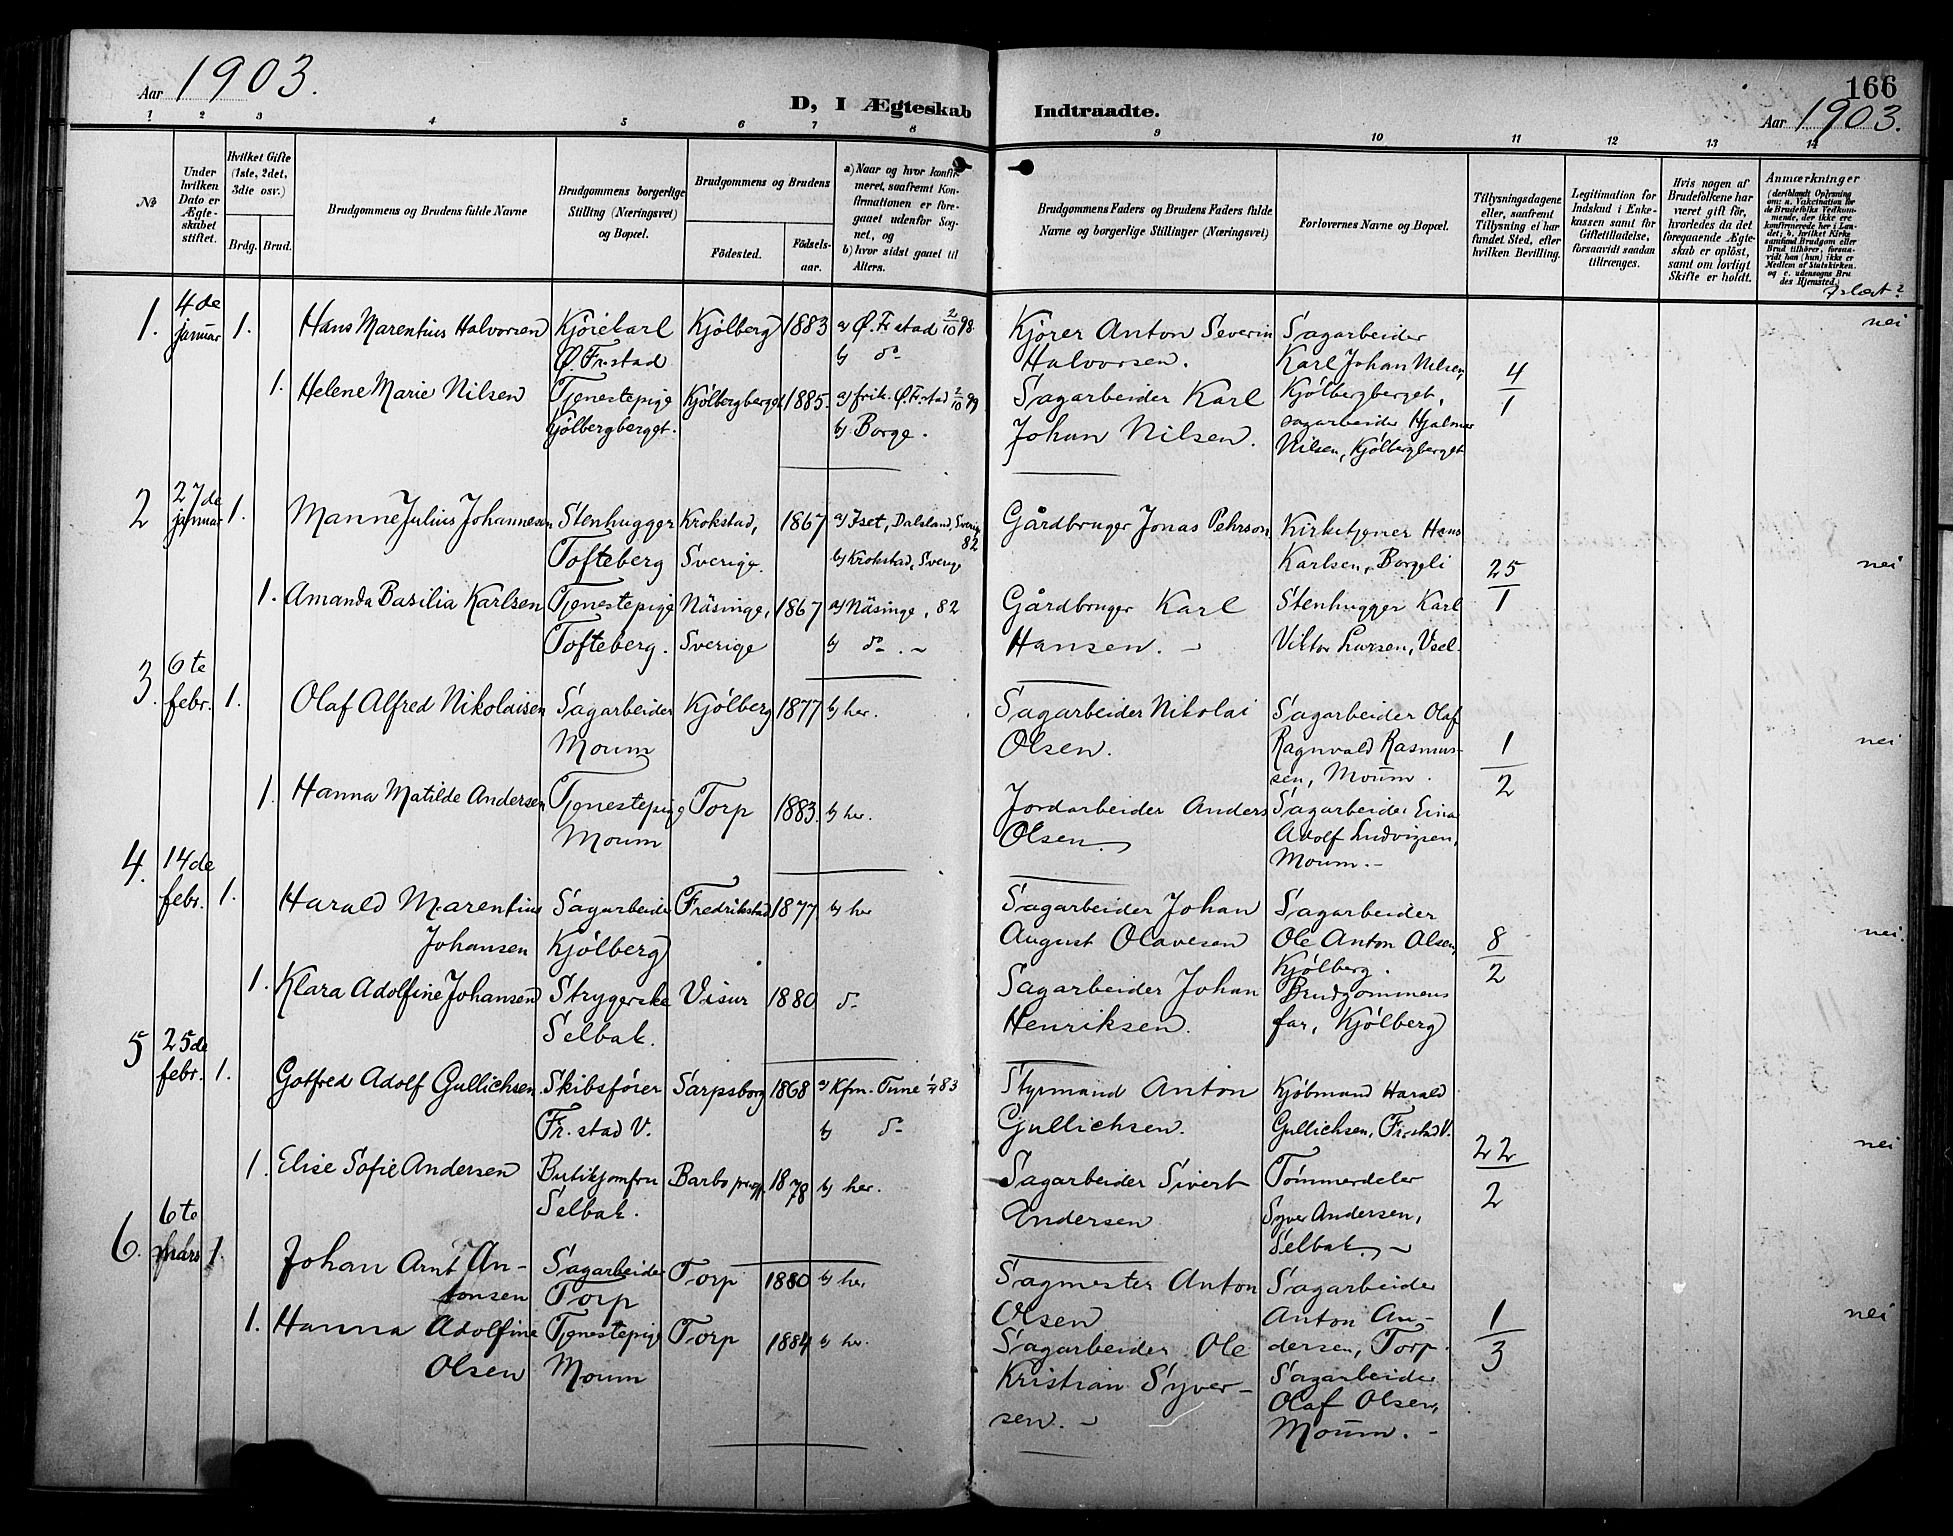 Aar 1903.
D, I Ægteskab
Indtraadte.
166
Aar 1903.
1 2 3 4 5 6 7 8 9 10 11 12 13 14
№
Under hvilken Dato er Ægteskabet stiftet.
Hvilket Gifte (1ste, 2det, 3die osv.)
Brdg. Brud.
Brudgommens og Brudens fulde Navne
Brudgommens borgerlige Stilling (Næringsvei) og Bopæl.
Brudgommens og Brudens
Fødested.
Fødselsaar.
a) Naar og hvor konfirmeret, saafremt Konfirmationen er foregaaet udenfor Sognet, og
b) hvor sidst gaaet til Alters.
Brudgommens Faders og Brudens Faders fulde Navne og borgerlige Stillinger (Næringsvei)
Forlovernes Navne og Bopæl.
Tillysningsdagene eller, saafremt Tillysning ei har fundet Sted, efter hvilken Bevilling.
Legitimation for Indskud i Enkekassen samt for Giftetilladelse, forsaavidt saadan tiltrænges.
Hvis nogen af Brudefolkene har været gift før, hvorledes da det foregaaende Ægteskab er opløst, samt om lovligt Skifte er holdt.
Anmærkninger
(deriblandt Oplysning om: a. Vakcination for de Brudefolks Vedkommende, der ikke ere konfirmerede her i Landet; b. hvilket Kirkesamfund Brudgom eller Brud tilhører, forsaavidt han (hun) ikke er Medlem af Statskirken, og c. udensogns Brudes Hjemsted.)
1. 4de januar 1. Hans Marentius Halvorsen Kjørekarl Kjølberg 1883 a) Ø. Fr.stad 2/10 98. Kjører Anton Severin Sagarbeider nei
Ø. Fr.stad b) do Halvorsen. Karl Johan Nilsen, 4/1
1. Helene Marie Nilsen Tjenestepige Kjølbergberget 1885. a) frik. Ø. Fr.stad 2/10 99 Sagarbeider Karl Kjølbergberget,
Kjølbergberget. b) Borge. Johan Nilsen. sagarbeider Hjalmar
Nilsen, Kjølbergberget
2 27de januar 1. Manne Julius Johannesen Stenhugger Krokstad, 1867 a) Iset, Dalsland, Sverig 82 Gårdbruger Jonas Pehrson Kirketjener Hans
Tofteberg Sverige. b) Krokstad, Sverige Karlsen, Borgeli 25/1 nei
1. Amanda Basilia Karlsen Tjenestepige Näsinge, 1867 a) Näsinge, 82 Gårdbruger Karl Stenhugger Karl
Tofteberg. Sverige b) do. Hansen. Viktor Larsen, Veel.
3. 6te febr. 1. Olaf Alfred Nikolaisen Sagarbeider Kjølberg 1877 b) her. Sagarbeider Nikolai Sagarbeider Olaf
Moum Olsen. Ragnvald Rasmus- 1/2 nei
sen, Moum.
1. Hanna Matilde Andersen Tjenestepige Torp 1883. b) her. Jordarbeider Anders Sagarbeider Einar
Moum Olsen. Adolf Ludvigsen,
Moum.
4. 14de febr. 1. Harald Marentius Sagarbeider Fredrikstad 1877. b) her Sagarbeider Johan Sagarbeider
Johansen Kjølberg August Olavesen Ole Anton Olsen, 8/2 nei.
Kjølberg.
1. Klara Adolfine Johansen Strygerske Visur 1880 do Sagarbeider Johan Brudgommens
Selbak. Henriksen. far, Kjølberg
5 25de febr. 1. Gotfred Adolf Gullichsen Skibsfører Sarpsborg 1868 a) Kfm. Tune 83 Styrmand Anton Kjøbmand Harald
Fr.stad V. b) do Gullichsen. Gullichsen, Fr.stad V. 22/2 nei
1. Elise Sofie Andersen Butikjomfru Barbo 1878 b) her. Sagarbeider Sivert Tømmerdeler
Selbak. Andersen Syver Andersen,
Selbak.
6. 6te mars 1. Johan Arnt An- Sagarbeider Torp 1880 b) her Sagmester Anton Sagarbeider
tonsen Torp Olsen Anton An- 1/3 nei
1. Hanna Adolfine Tjenestepige Torp 1884 b) her. Sagarbeider Ole dersen, Torp.
Olsen Moum Kristian Syver- Sagarbeider
sen. Olaf Olsen,
Moum.